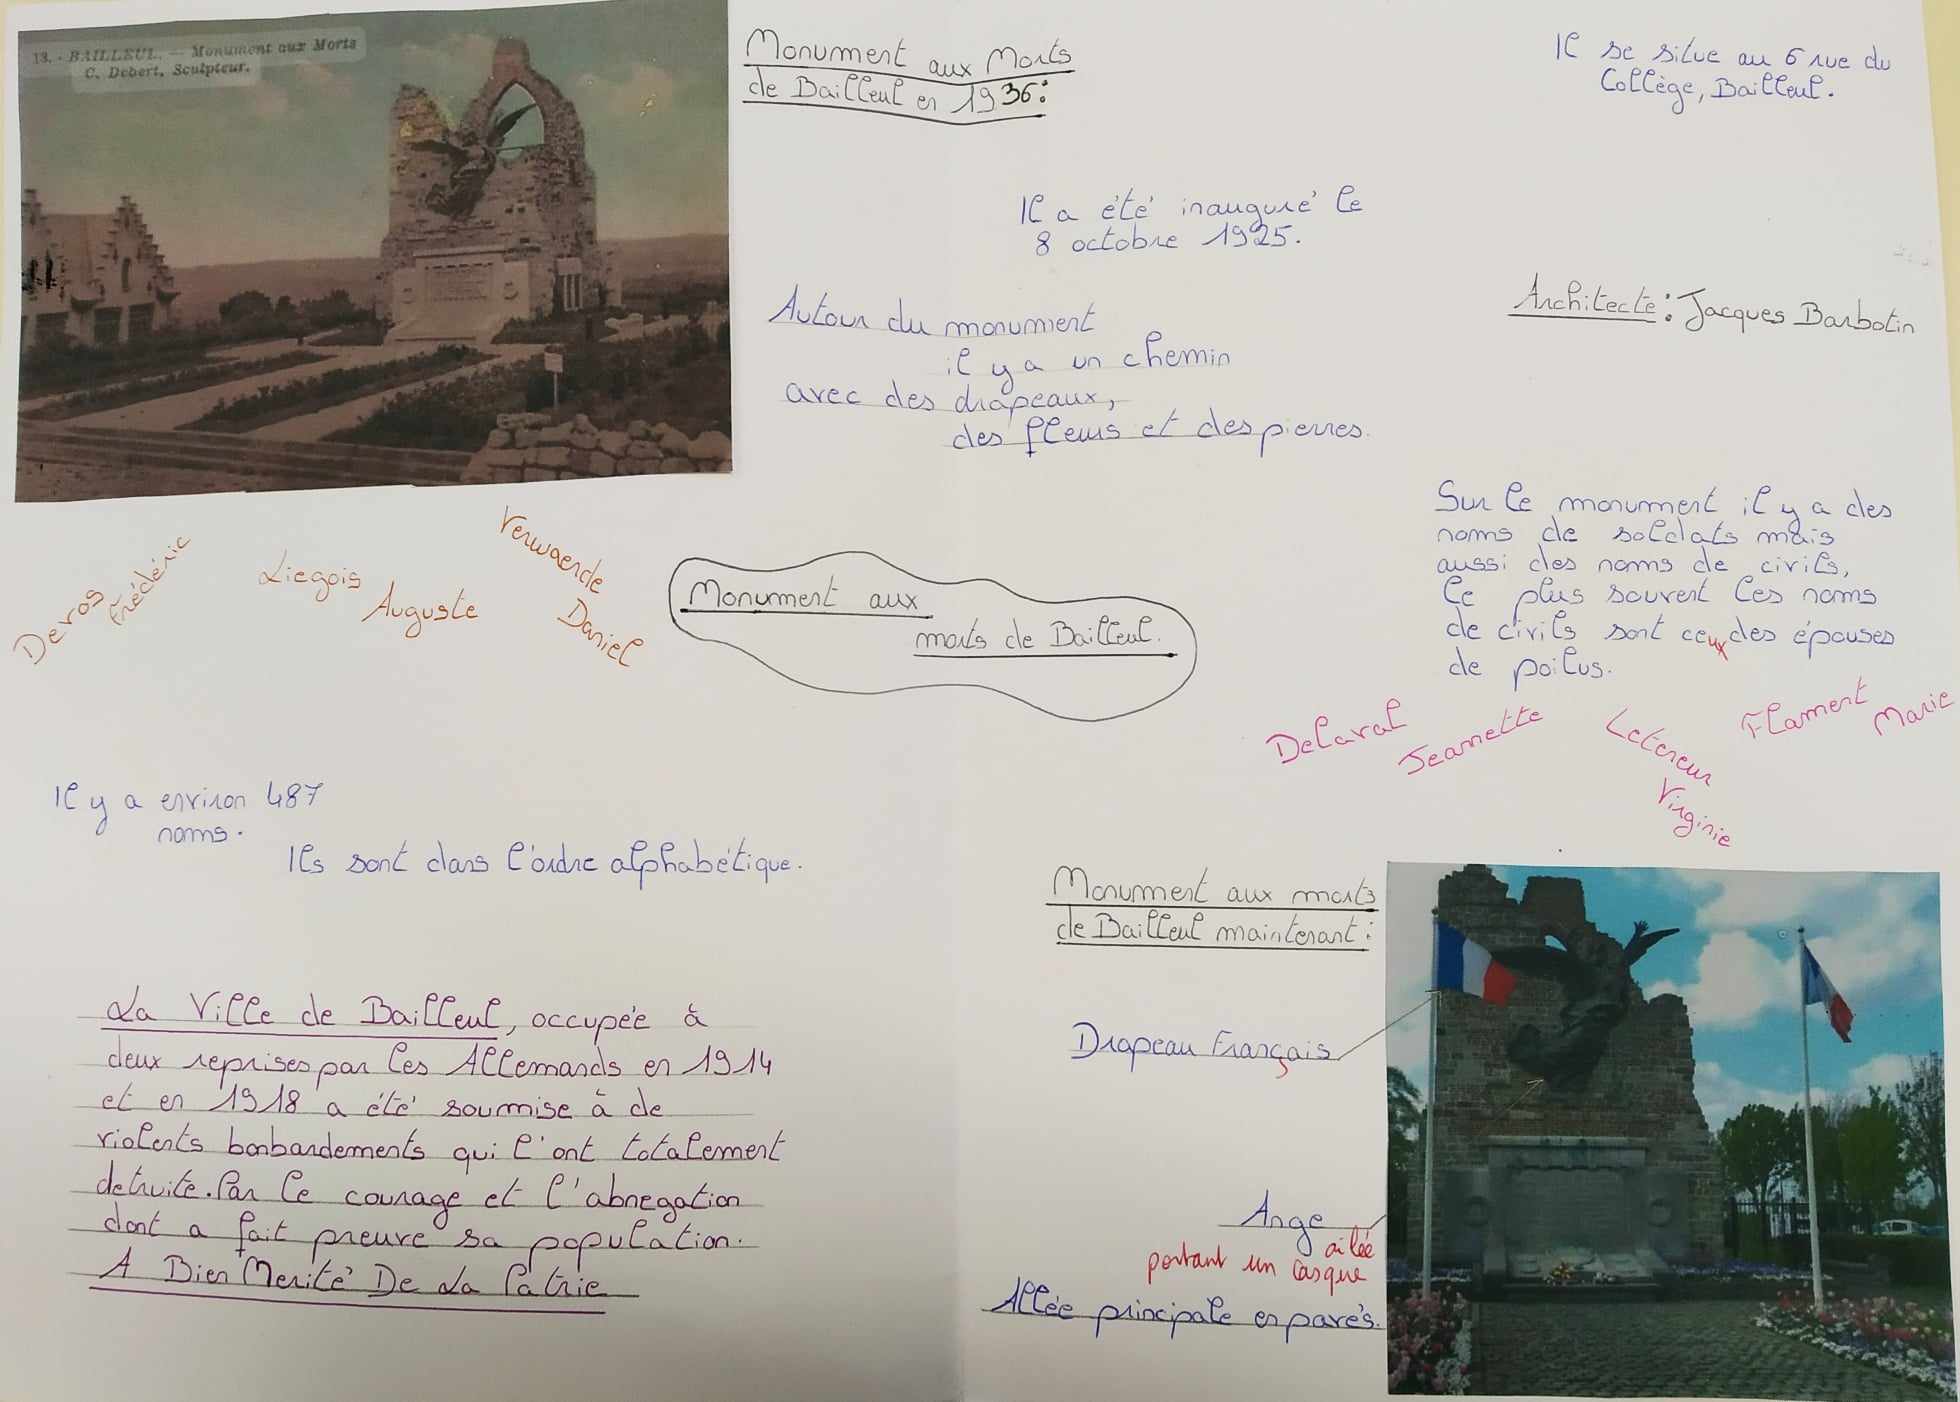 13. - BAILLEUL. — Monument aux Morts
C. Debert, Sculpteur.
Monument aux Morts
de Bailleul en 1936:
Il se situe au 6 rue du
Collège, Bailleul.
Il a été inauguré le
8 octobre 1925.
Architecte: Jacques Barbotin
Autour du monument
il y a un chemin
avec des drapeaux,
des fleurs et des pierres.
Sur le monument il y a des
noms de soldats mais
aussi des noms de civils,
le plus souvent les noms
de civils sont ceux des épouses
de poilus.
Devos
Frédéric
Liegois
Auguste
Verwaerde
Daniel
Monument aux
morts de Bailleul.
Delaval
Jeannette
Letereur
Virginie
Flament
Marie
Il y a environ 487
noms.
Ils sont dans l'ordre alphabétique.
Monument aux morts
de Bailleul maintenant:
Drapeau Français
Ange
ailée
portant un casque
Allée principale en pavés.
La Ville de Bailleul, occupée à
deux reprises par les Allemands en 1914
et en 1918 a été soumise à de
violents bonbardements qui l'ont totalement
detruite. Par le courage et l'abnegation
dont a fait preuve sa population.
A Bien Merité De La Patrie